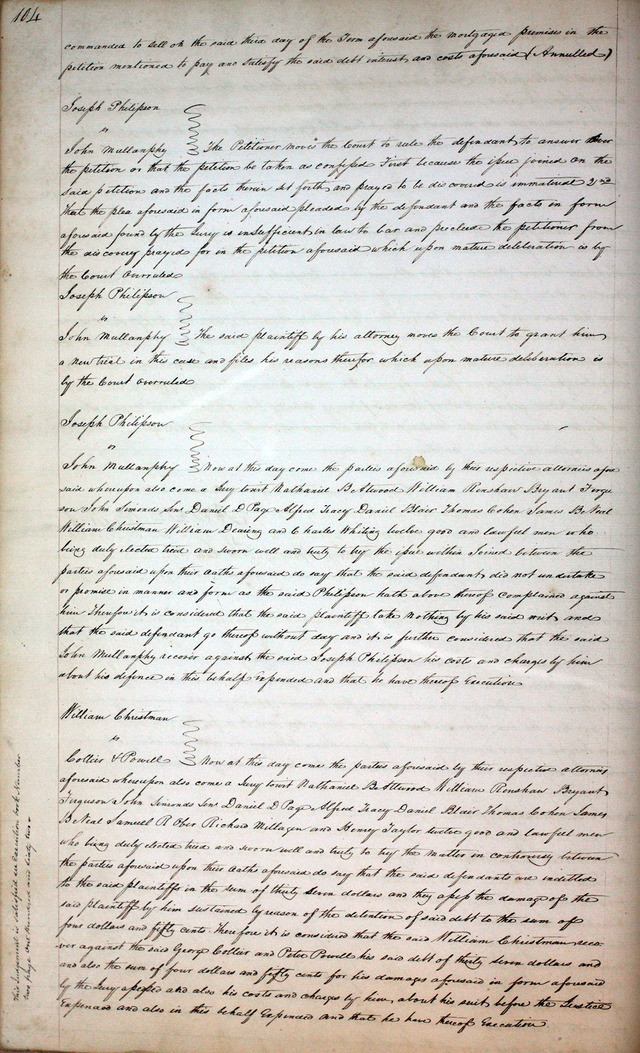 104
commanded to sell on the said third day of the Term aforesaid the mortgaged premises in the
petition mentioned to pay and satisfy the said debt interest and costs aforesaid (Annulled)
Joseph Philipson
vs
John Mullanphy The Petitioner moves the Court to rule the defendant to answer over
the petition or that the petition be taken as confessed First because the issue joined on the
said petition and the facts therein set forth and prayed to be discovered is immaterial 2nd
That the plea aforesaid in form aforesaid pleaded by the defendant and the facts in form
aforesaid found by the Jury is insufficient in law to bar and preclude the petitioner from
the discovery prayed for in the petition aforesaid which upon mature deliberation is by
the Court overruled
Joseph Philipson
vs
John Mullanphy The said plaintiff by his attorney moves the Court to grant him
a new trial in this case and files his reasons therefor which upon mature deliberation is
by the Court overruled
Joseph Philipson
vs
John Mullanphy Now at this day come the parties aforesaid by their respective attornies afore
said whereupon also come a Jury towit Nathaniel B Atwood William Renshaw Bryant Fergu
son John Simonds Senr Daniel D Page Alfred Tracy Daniel Blair Thomas Cohen James B Neal
William Christman William Dearing and Charles Whiting twelve good and lawful men who
being duly elected tried and sworn well and truly to try the issue within Joined between the
parties aforesaid upon their Oaths aforesaid do say that the said defendant did not undertake
or promise in manner and form as the said Philipson hath above thereof complained against
him Therefore it is considered that the said plaintiff take nothing by his said writ and
that the said defendant go thereof without day and it is further considered that the said
John Mullanphy recover against the said Joseph Philipson his costs and charges by him
about his defence in this behalf Expended and that he have thereof Execution
William Christman
vs
Collier & Powell Now at this day come the parties aforesaid by their respective attornies
aforesaid whereupon also come a Jury towit Nathaniel B Attwood William Renshaw Bryant
Ferguson John Simonds Senr Daniel D Page Alfred Tracy Daniel Blair Thomas Cohen James
B Neal Samuell R Ober Richard Milligen and Henry Taylor twelve good and lawful men
who being duly elected tried and sworn well and truly to try the matter in controversy between
the parties aforesaid upon their Oaths aforesaid do say that the said defendants are indebted
to the said plaintiffs in the sum of thirty seven dollars and they assess the damage of the
said plaintiff by him sustained by reason of the detention of said debt to the sum of
four dollars and fifty cents Therefore it is considered that the said William Christman reco
ver against the said George Collier and Peter Powell his said debt of thirty seven dollars and
and also the sum of four dollars and fifty cents for his damages aforesaid in form aforesaid
by the Jury assessed and also his costs and charges by him about his suit before the Justice
Expended and also in this behalf Expended and that he have thereof Execution
This Judgement is satisfied see Execution book Number
two page one hundred and sixty two